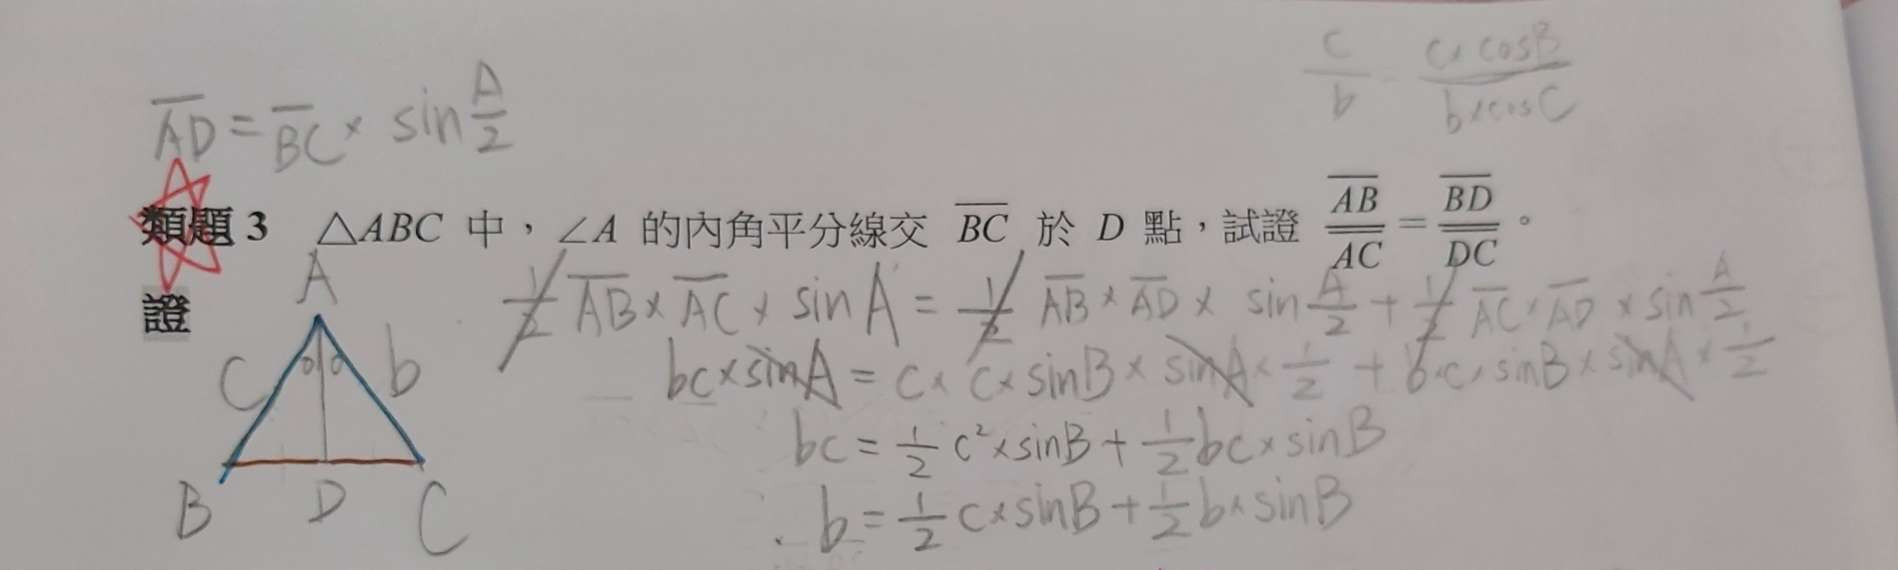 c/b = c×cosB/b×cosC
AD = BC × sin A/2
類題 3 △ABC 中，∠A 的內角平分線交 BC 於 D 點，試證 AB/AC = BD/DC。
證
A
1/2 AB × AC × sin A = 1/2 AB × AD × sin A/2 + 1/2 AC × AD × sin A/2
c b
bc × sinA = c × c × sinB × sinA × 1/2 + b×c×sinB × sinA × 1/2
bc = 1/2 c² × sinB + 1/2 bc × sinB
B D C
b = 1/2 c × sinB + 1/2 b × sinB